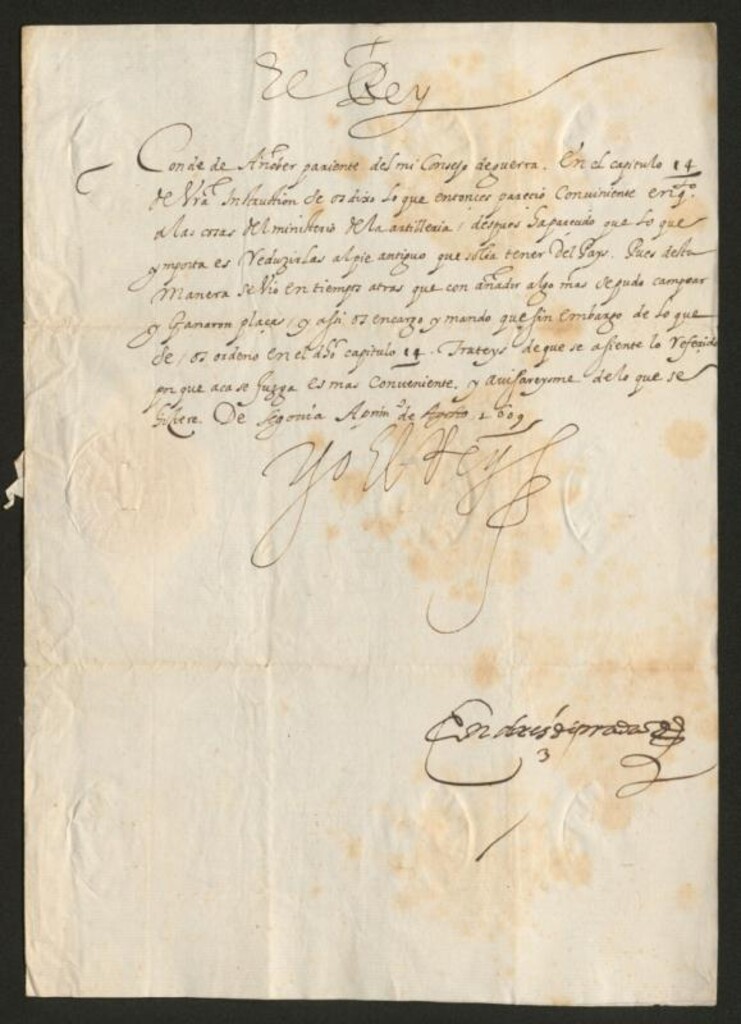 El Rey
Conde de Añober pariente del mi Consejo de guerra. En el capitulo 14
de Vrã Instruction se os dixo lo que entonces pareció Conviniente en qto
a las cosas del ministerio de la artilleria, despues ha parecido que lo que
ymporta es Reduzirlas al pie antiguo que solia tener del Pays. Pues desta
Manera se vio en tiempo atras que con añadir algo mas se pudo campear
y ganaron plaças, y assi os encargo y mando que sin embargo de lo que
se os ordeno en el dho capitulo 14. Trateys de que se assiente lo Referido
por que aca se juzga es mas Conveniente, y avisareysme de lo que se
hiziere. De Segovia A prim.o de Agosto 1609
Yo El Rey
Andres de prada
3